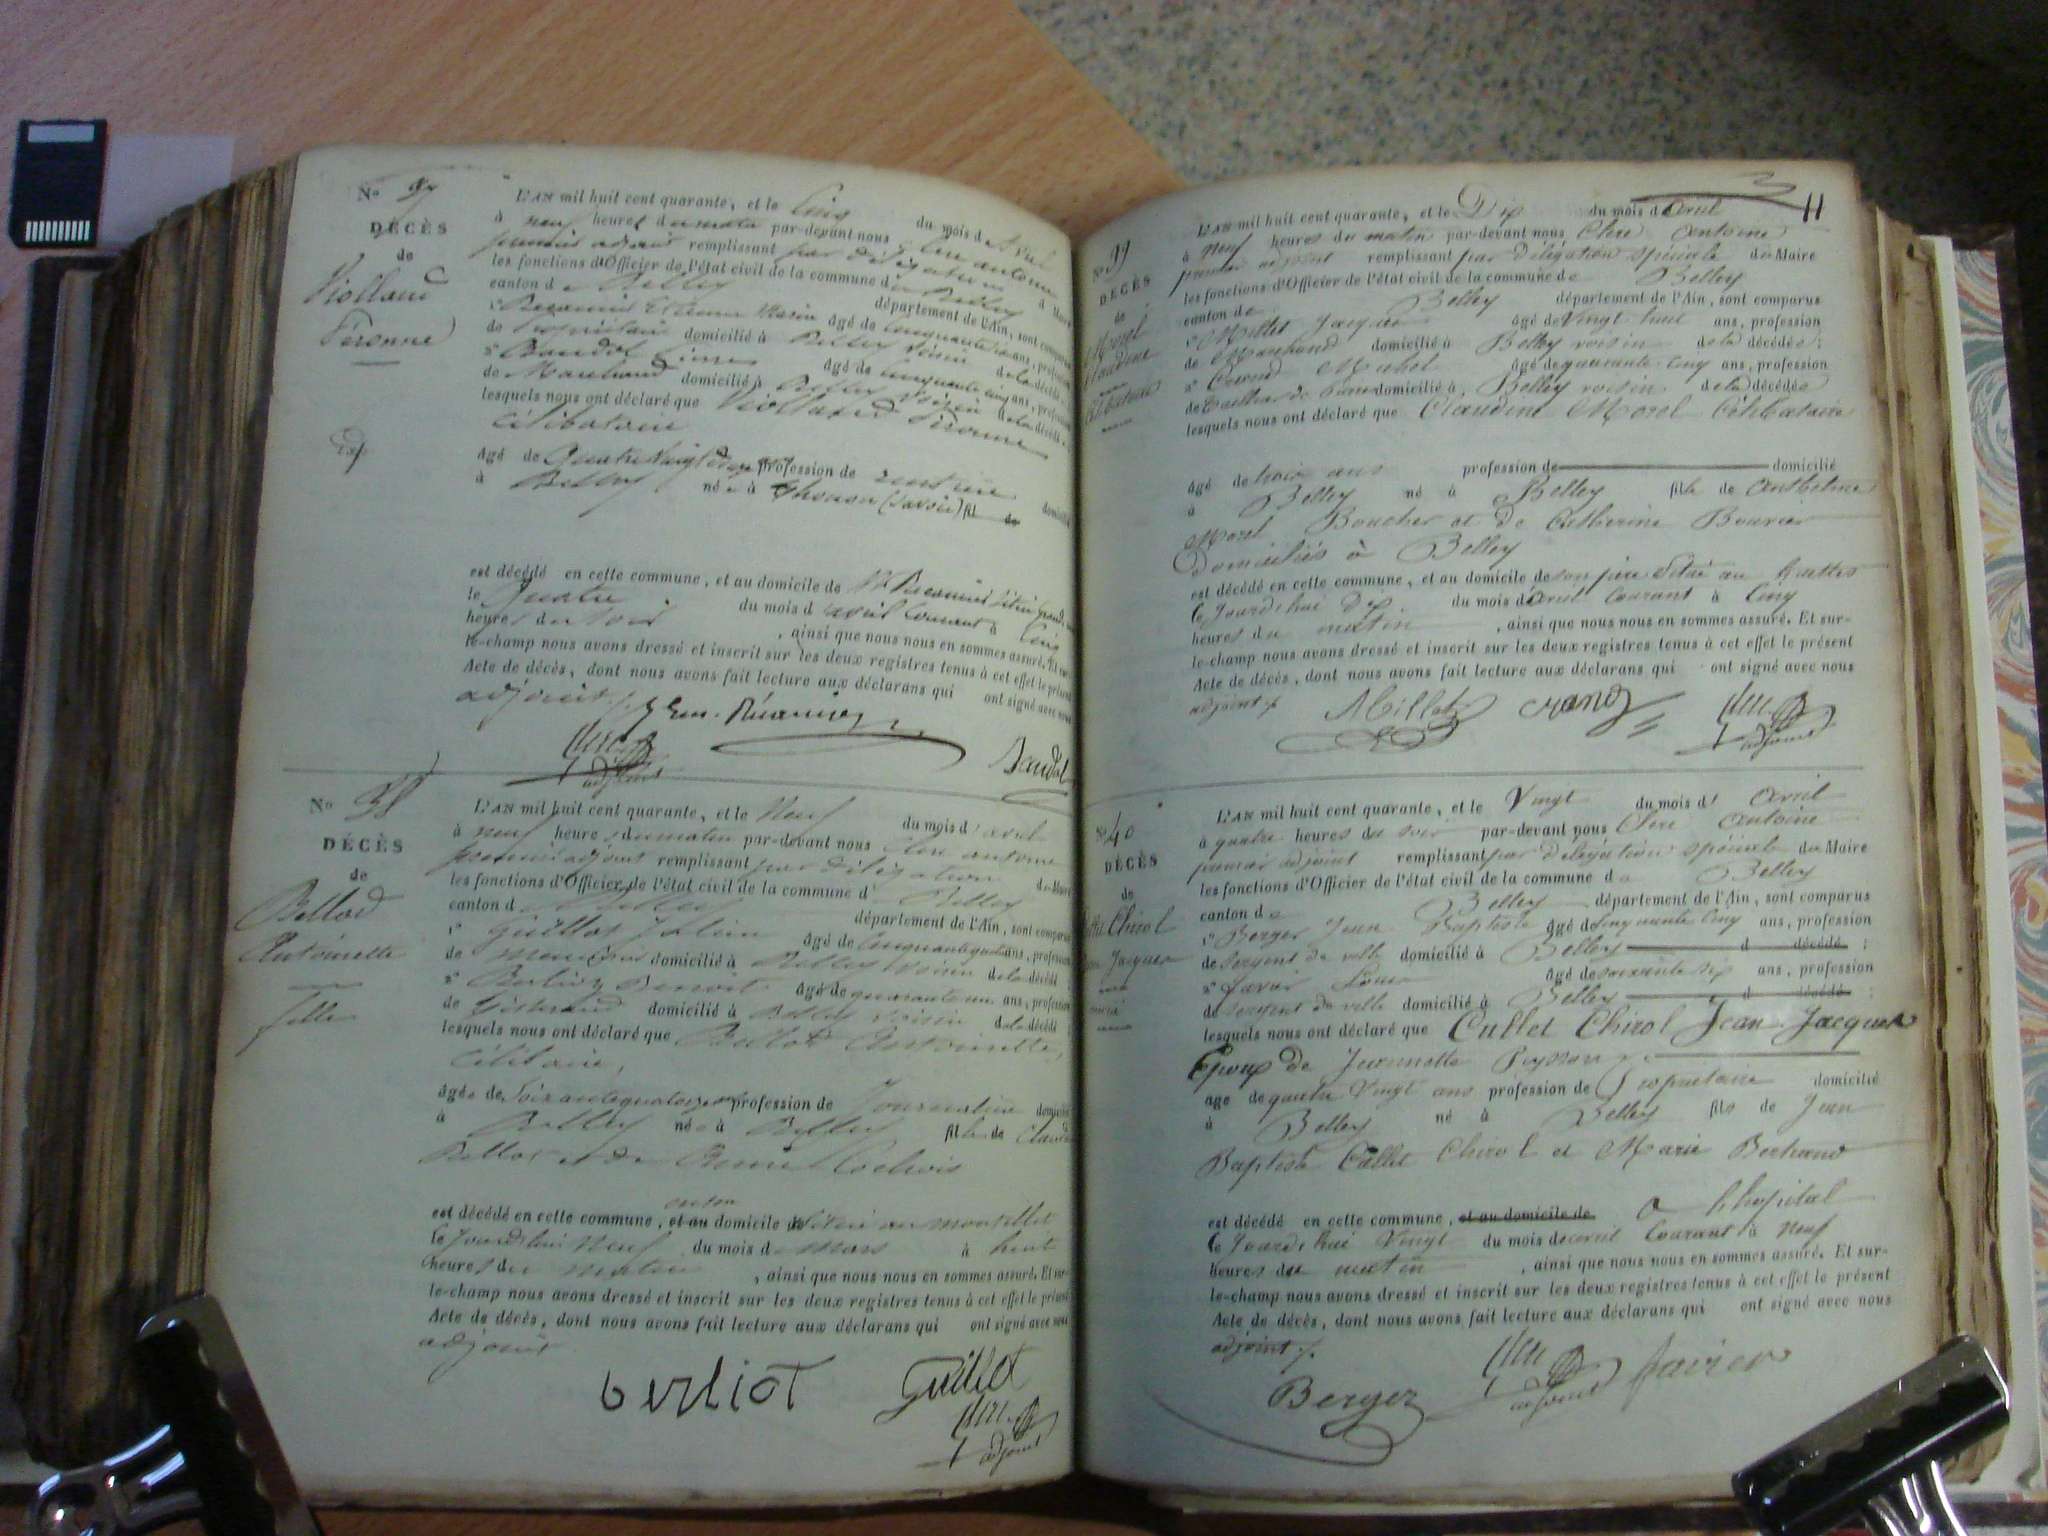 No 37
DÉCÈS
de
Violland
Péronne
L'AN mil huit cent quarante, et le Cinq du mois d'Avril
à neuf heures du matin par-devant nous Clere antoine
premier adjoint remplissant par délégation du Maire
les fonctions d'Officier de l'état civil de la commune de Belley
canton de Belley département de l'Ain, sont comparus
1° Etienne Marie âgé de ans, profession
de propriétaire domicilié à Belley voisin de la décédée
2° Baudot âgé de cinquante cinq ans, profession
de Marchand domicilié à Belley voisin de la décédée
lesquels nous ont déclaré que Violland Péronne
célibataire
âgée de Quatre Vingt profession de rentière domiciliée
à Belley née à (Savoie) fil de
est décédé en cette commune, et au domicile de
le Quatre du mois d'avril courant à Cinq
heures du soir , ainsi que nous nous en sommes assuré. Et sur-
le-champ nous avons dressé et inscrit sur les deux registres tenus à cet effet le présent
Acte de décès, dont nous avons fait lecture aux déclarans qui ont signé avec nous
adjoint
adjoint
Baudot
No 38
DÉCÈS
de
Bellod
Antoinette
fille
L'AN mil huit cent quarante, et le Neuf du mois d'avril
à neuf heures du matin par-devant nous Clere antoine
premier adjoint remplissant par délégation du Maire
les fonctions d'Officier de l'état civil de la commune d Belley
canton de Belley département de l'Ain, sont comparus
1° Guillot âgé de ans, profession
de menuisier domicilié à Belley voisin de la décédé
2° Benoit âgé de quarante un ans, profession
de domicilié à Belley voisin de la décédé
lesquels nous ont déclaré que Antoinette,
âgée de Soixante quatorze ans profession de Journalière domicilié
à Belley née à Belley fille de Claude
et de
est décédé en cette commune, et au domicile
le Jourd'hui Neuf du mois de Mars à huit
heures du matin , ainsi que nous nous en sommes assuré. Et sur-
le-champ nous avons dressé et inscrit sur les deux registres tenus à cet effet le présent
Acte de décès, dont nous avons fait lecture aux déclarans qui ont signé avec nous
adjoint
berliot Guillot
adjoint
11
No 39
DÉCÈS
de
Morel
Claudine
Célibataire
L'AN mil huit cent quarante, et le Dix du mois d'avril
à Neuf heures du matin par-devant nous Clere Antoine
premier adjoint remplissant par délégation spéciale du Maire
les fonctions d'Officier de l'état civil de la commune de Belley
canton de Belley département de l'Ain, sont comparus
1° Millet Jacques âgé de Vingt huit ans, profession
de Marchand domicilié à Belley voisin de la décédée;
2° Michel âgé de quarante cinq ans, profession
de domicilié à Belley voisin de la décédée
lesquels nous ont déclaré que Claudine Morel Célibataire
âgé de trois ans profession de domicilié
à Belley né à Belley fille de Anthelme
Morel Boucher et de Catherine Bouvier
Domiciliés à Belley
est décédé en cette commune, et au domicile de son père situé au
le Jourd'hui dix du mois d'avril courant à Cinq
heures du matin , ainsi que nous nous en sommes assuré. Et sur-
le-champ nous avons dressé et inscrit sur les deux registres tenus à cet effet le présent
Acte de décès, dont nous avons fait lecture aux déclarans qui ont signé avec nous
adjoint
Millet
adjoint
No 40
DÉCÈS
de
Cullet Chirol
Jean Jacques
marié
L'AN mil huit cent quarante, et le Vingt du mois d' Avril
à quatre heures du soir par-devant nous Clere Antoine
premier adjoint remplissant par délégation spéciale du Maire
les fonctions d'Officier de l'état civil de la commune de Belley
canton de Belley département de l'Ain, sont comparus
1° Berger Jean Baptiste âgé de Cinquante Cinq ans, profession
de Sergent de ville domicilié à Belley d décédé ;
2° Favier Louis âgé de soixante six ans, profession
de sergent de ville domicilié à Belley d décédé ;
lesquels nous ont déclaré que Cullet Chirol Jean Jacques
Epoux de Jeannette Peysson
âgé de quatre Vingt ans profession de Propriétaire domicilié
à Belley né à Belley fils de Jean
Baptiste Cullet Chirol et Marie Bertrand
est décédé en cette commune, et au domicile de a l'hopital
le Jourd'hui Vingt du mois d'avril Courant à neuf
heures du matin , ainsi que nous nous en sommes assuré. Et sur-
le-champ nous avons dressé et inscrit sur les deux registres tenus à cet effet le présent
Acte de décès, dont nous avons fait lecture aux déclarans qui ont signé avec nous
adjoint
Berger adjoint favier